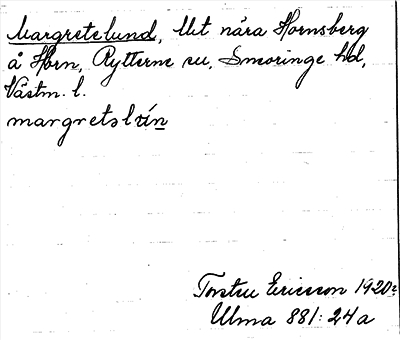 Margretelund, Ut nära Hornsberg
å Horn, Rytterne sn, Snevringe hd,
Västm. l.
margretəl
Torsten Ericsson 1920:
Ulma 881:24a